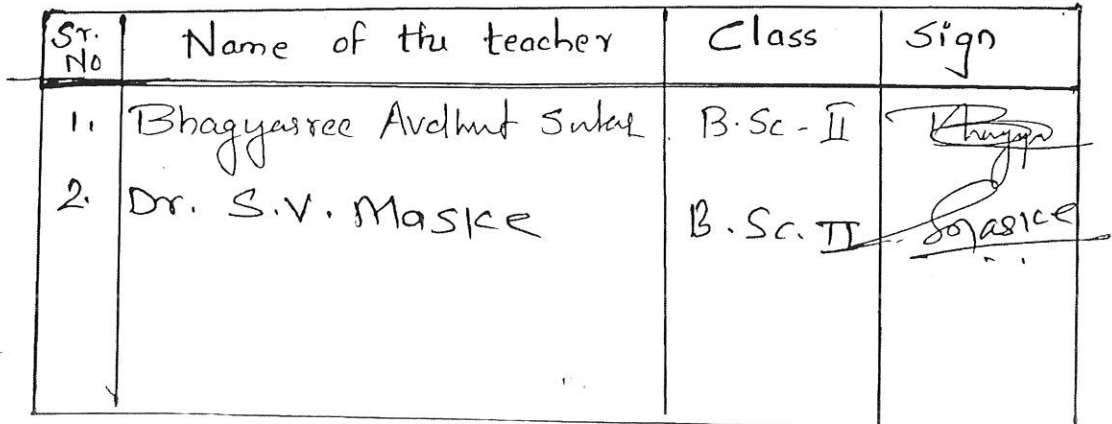 Sr. No Name of the teacher Class Sign
1. Bhagyasree Avdhut Sutar B.Sc - II
2. Dr. S.V. Maske B.Sc. II Smaske